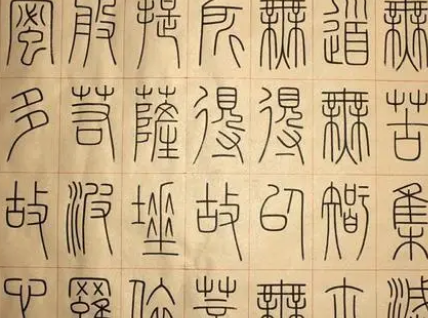 無苦集滅
道無智亦
無得以無
所得故菩
提薩埵依
般若波羅
蜜多故心